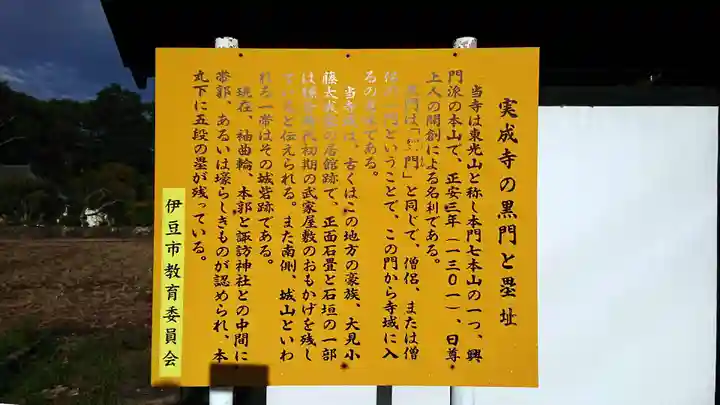 実成寺の黒門と塁址
当寺は東光山と称し本門七本山の一つ、興
門派の本山で、正安三年（一三０一）、日尊
上人の開創による名刹である。
黒門は「門」と同じで、僧侶、または僧
門ということで、この門から寺域に入
るの である。
当寺域は、古くはこの地方の豪族、大見小
藤太 の居館跡で、正面石畳と石垣の一部
は 初期の武家屋敷のおもかげを残し
ていると伝えられる。また南側、城山といわ
れる一帯はその城砦跡である。
現在、袖曲輪、本郭と諏訪神社との中間に
帯郭、あるいは壕らしきものが認められ、本
丸下に五段の塁が残っている。
伊豆市教育委員会